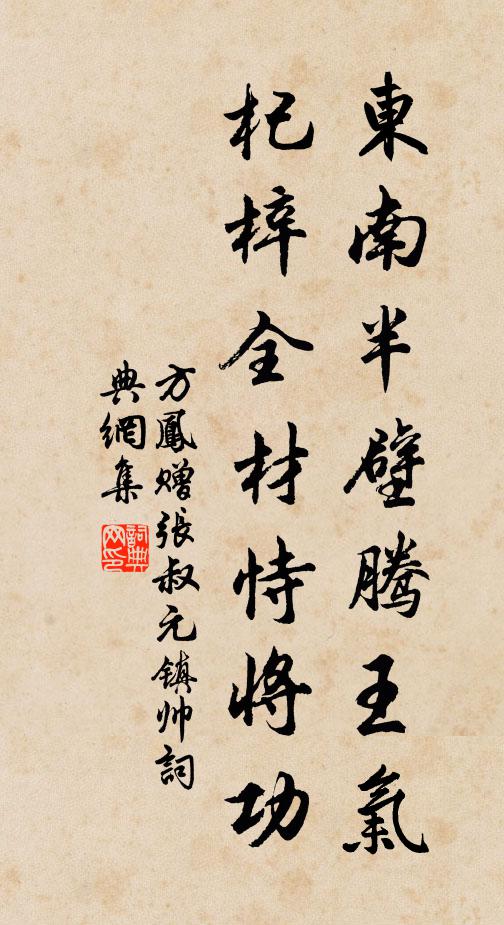 東南半壁騰王氣
杞梓全材恃將功
方鳳贈張叔元鎮帅詞
典網集
詞典网印